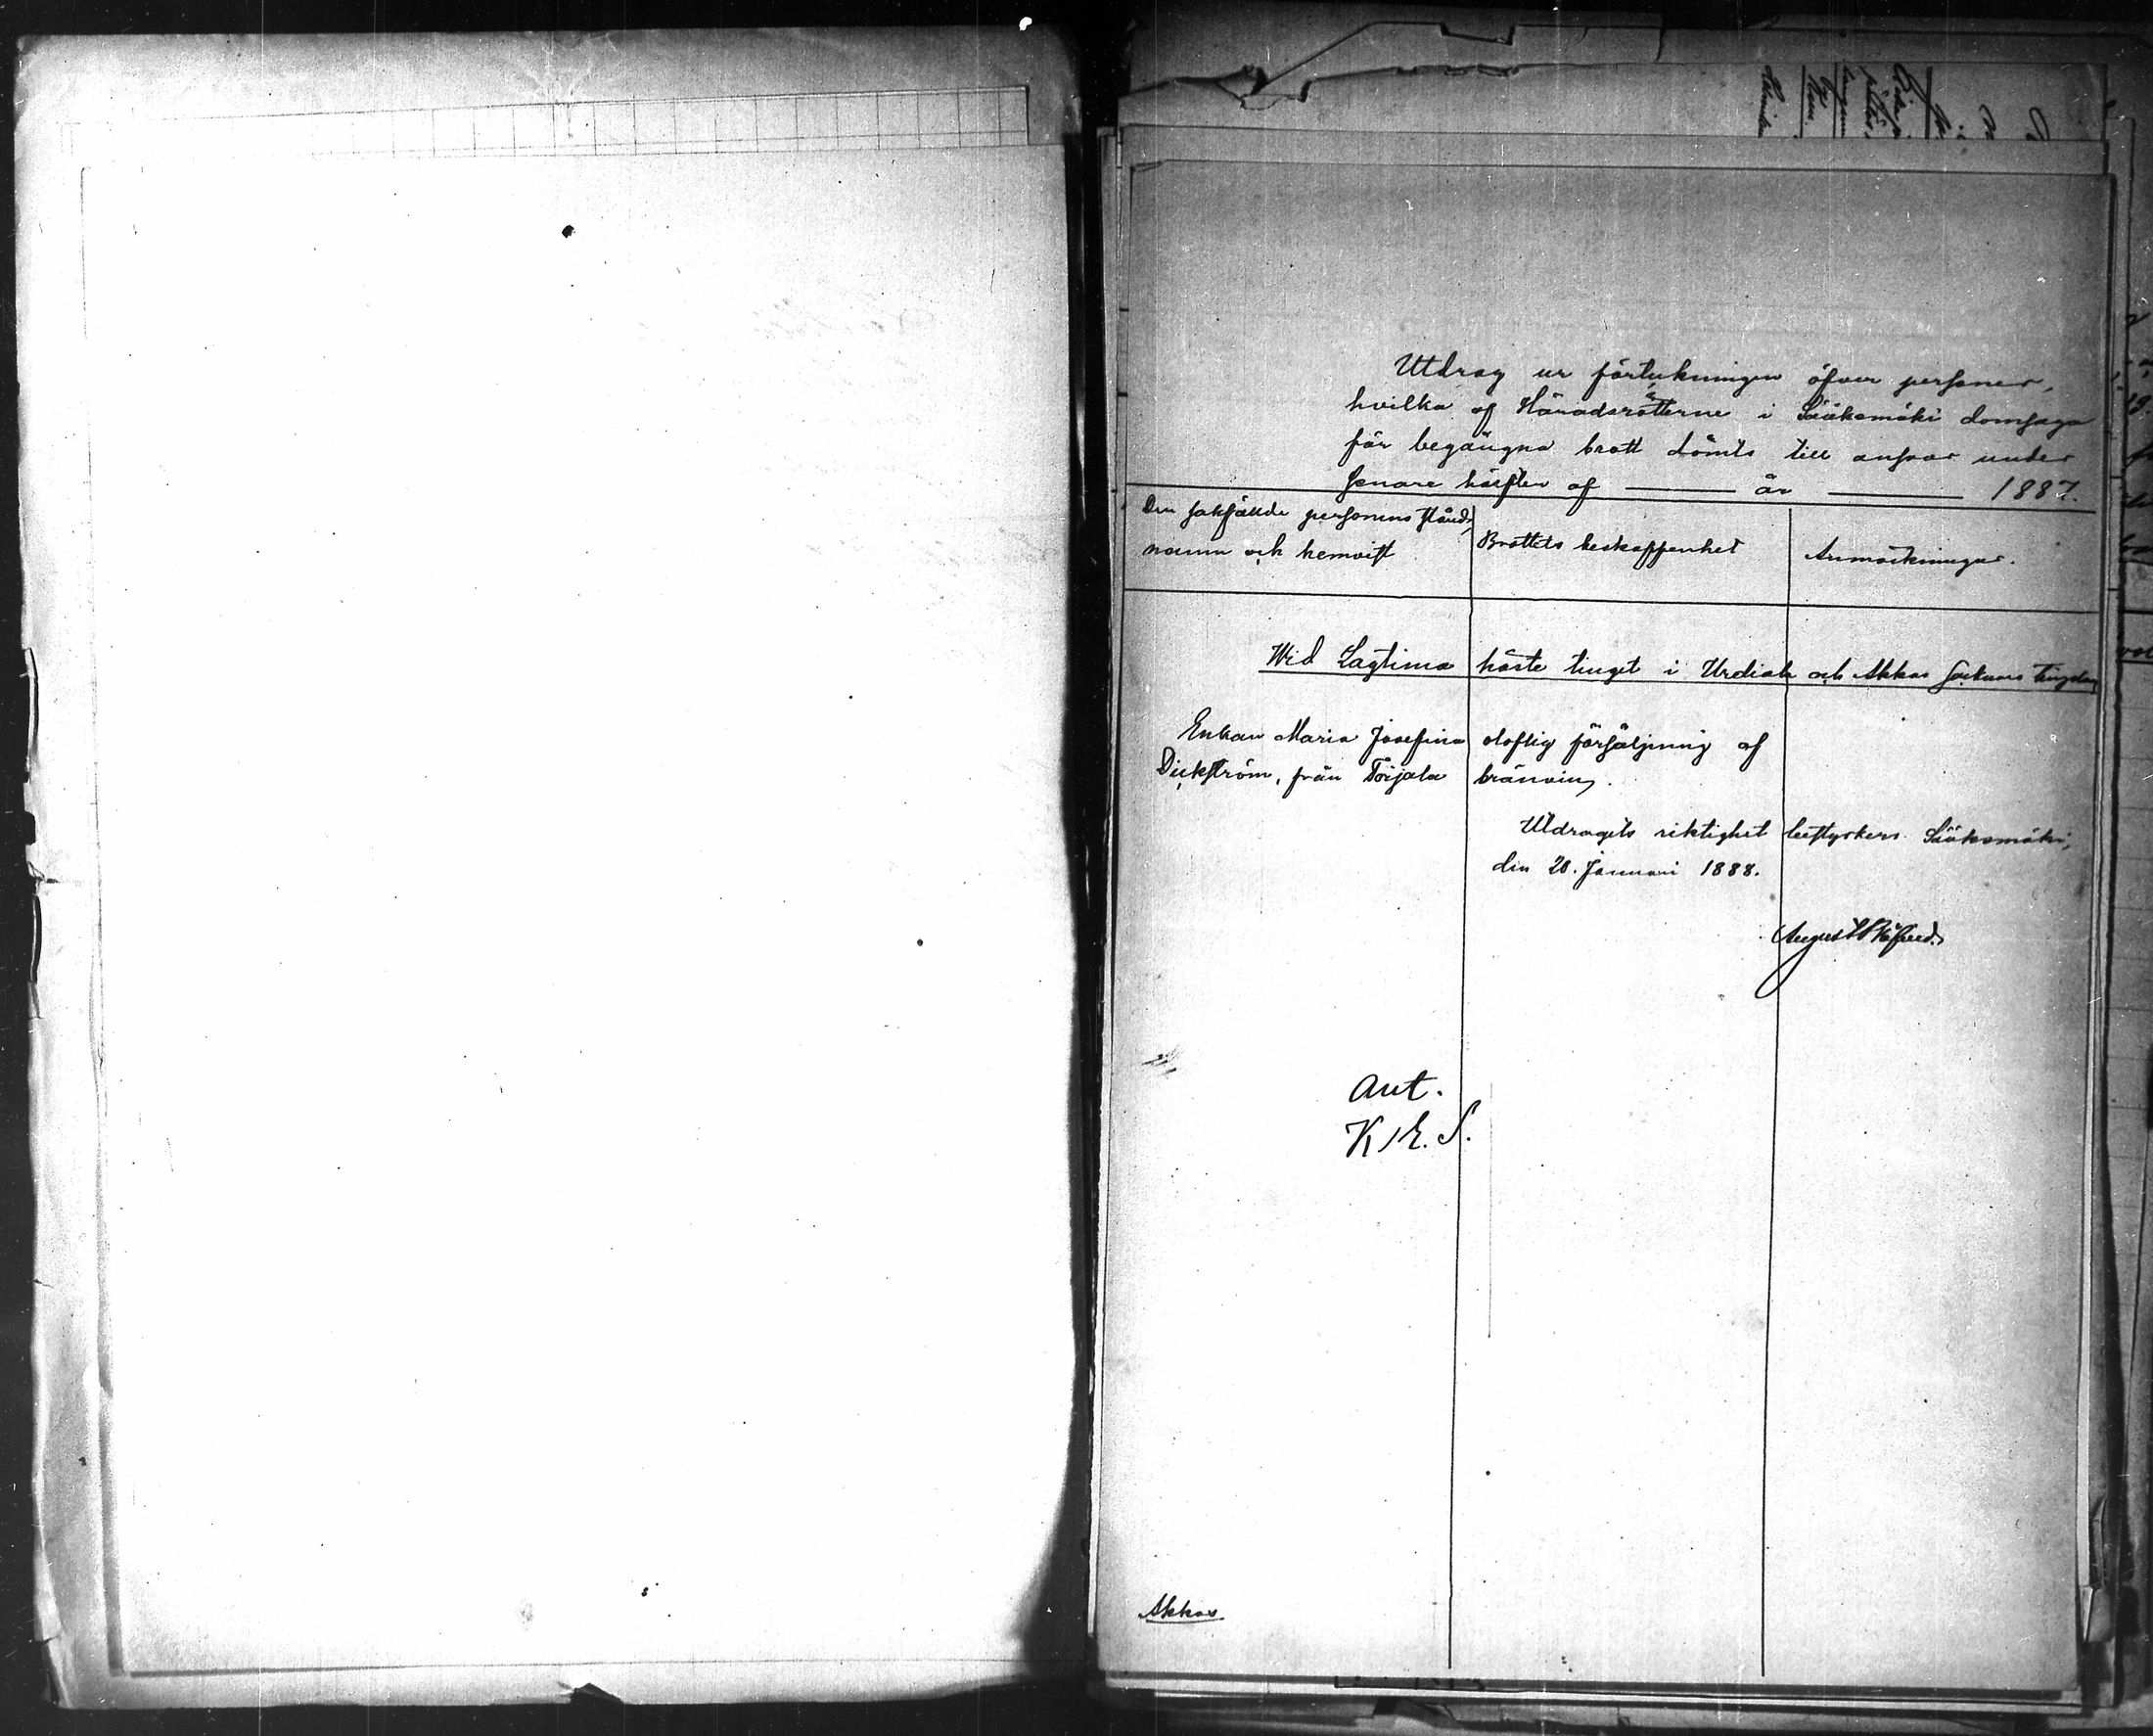 Utdrag ur förteckningen öfver personer,
hvilka af Häradsrätterne i Sääksmäki domsaga
för begångna brott dömts till ansvar under
senare hälften af — år — 1887.
Den sakfällde personens stånd,
namn och hemvist
Brottets beskaffenhet
Anmärkningar.
Wid Lagtima höste tinget i Urdiala och Akkas socknars tingslag
Enkan Maria Josefina
Dickström, från Toijala
oloflig försäljning af
bränvin.
Utdragets riktighet bestyrkers. Sääksmäki,
den 20. Januari 1888.
August
Ant.
K. E. S.
Akkas